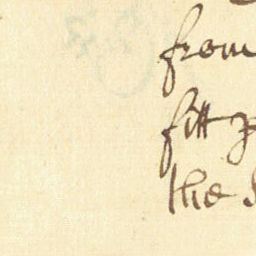 from
fitt
the